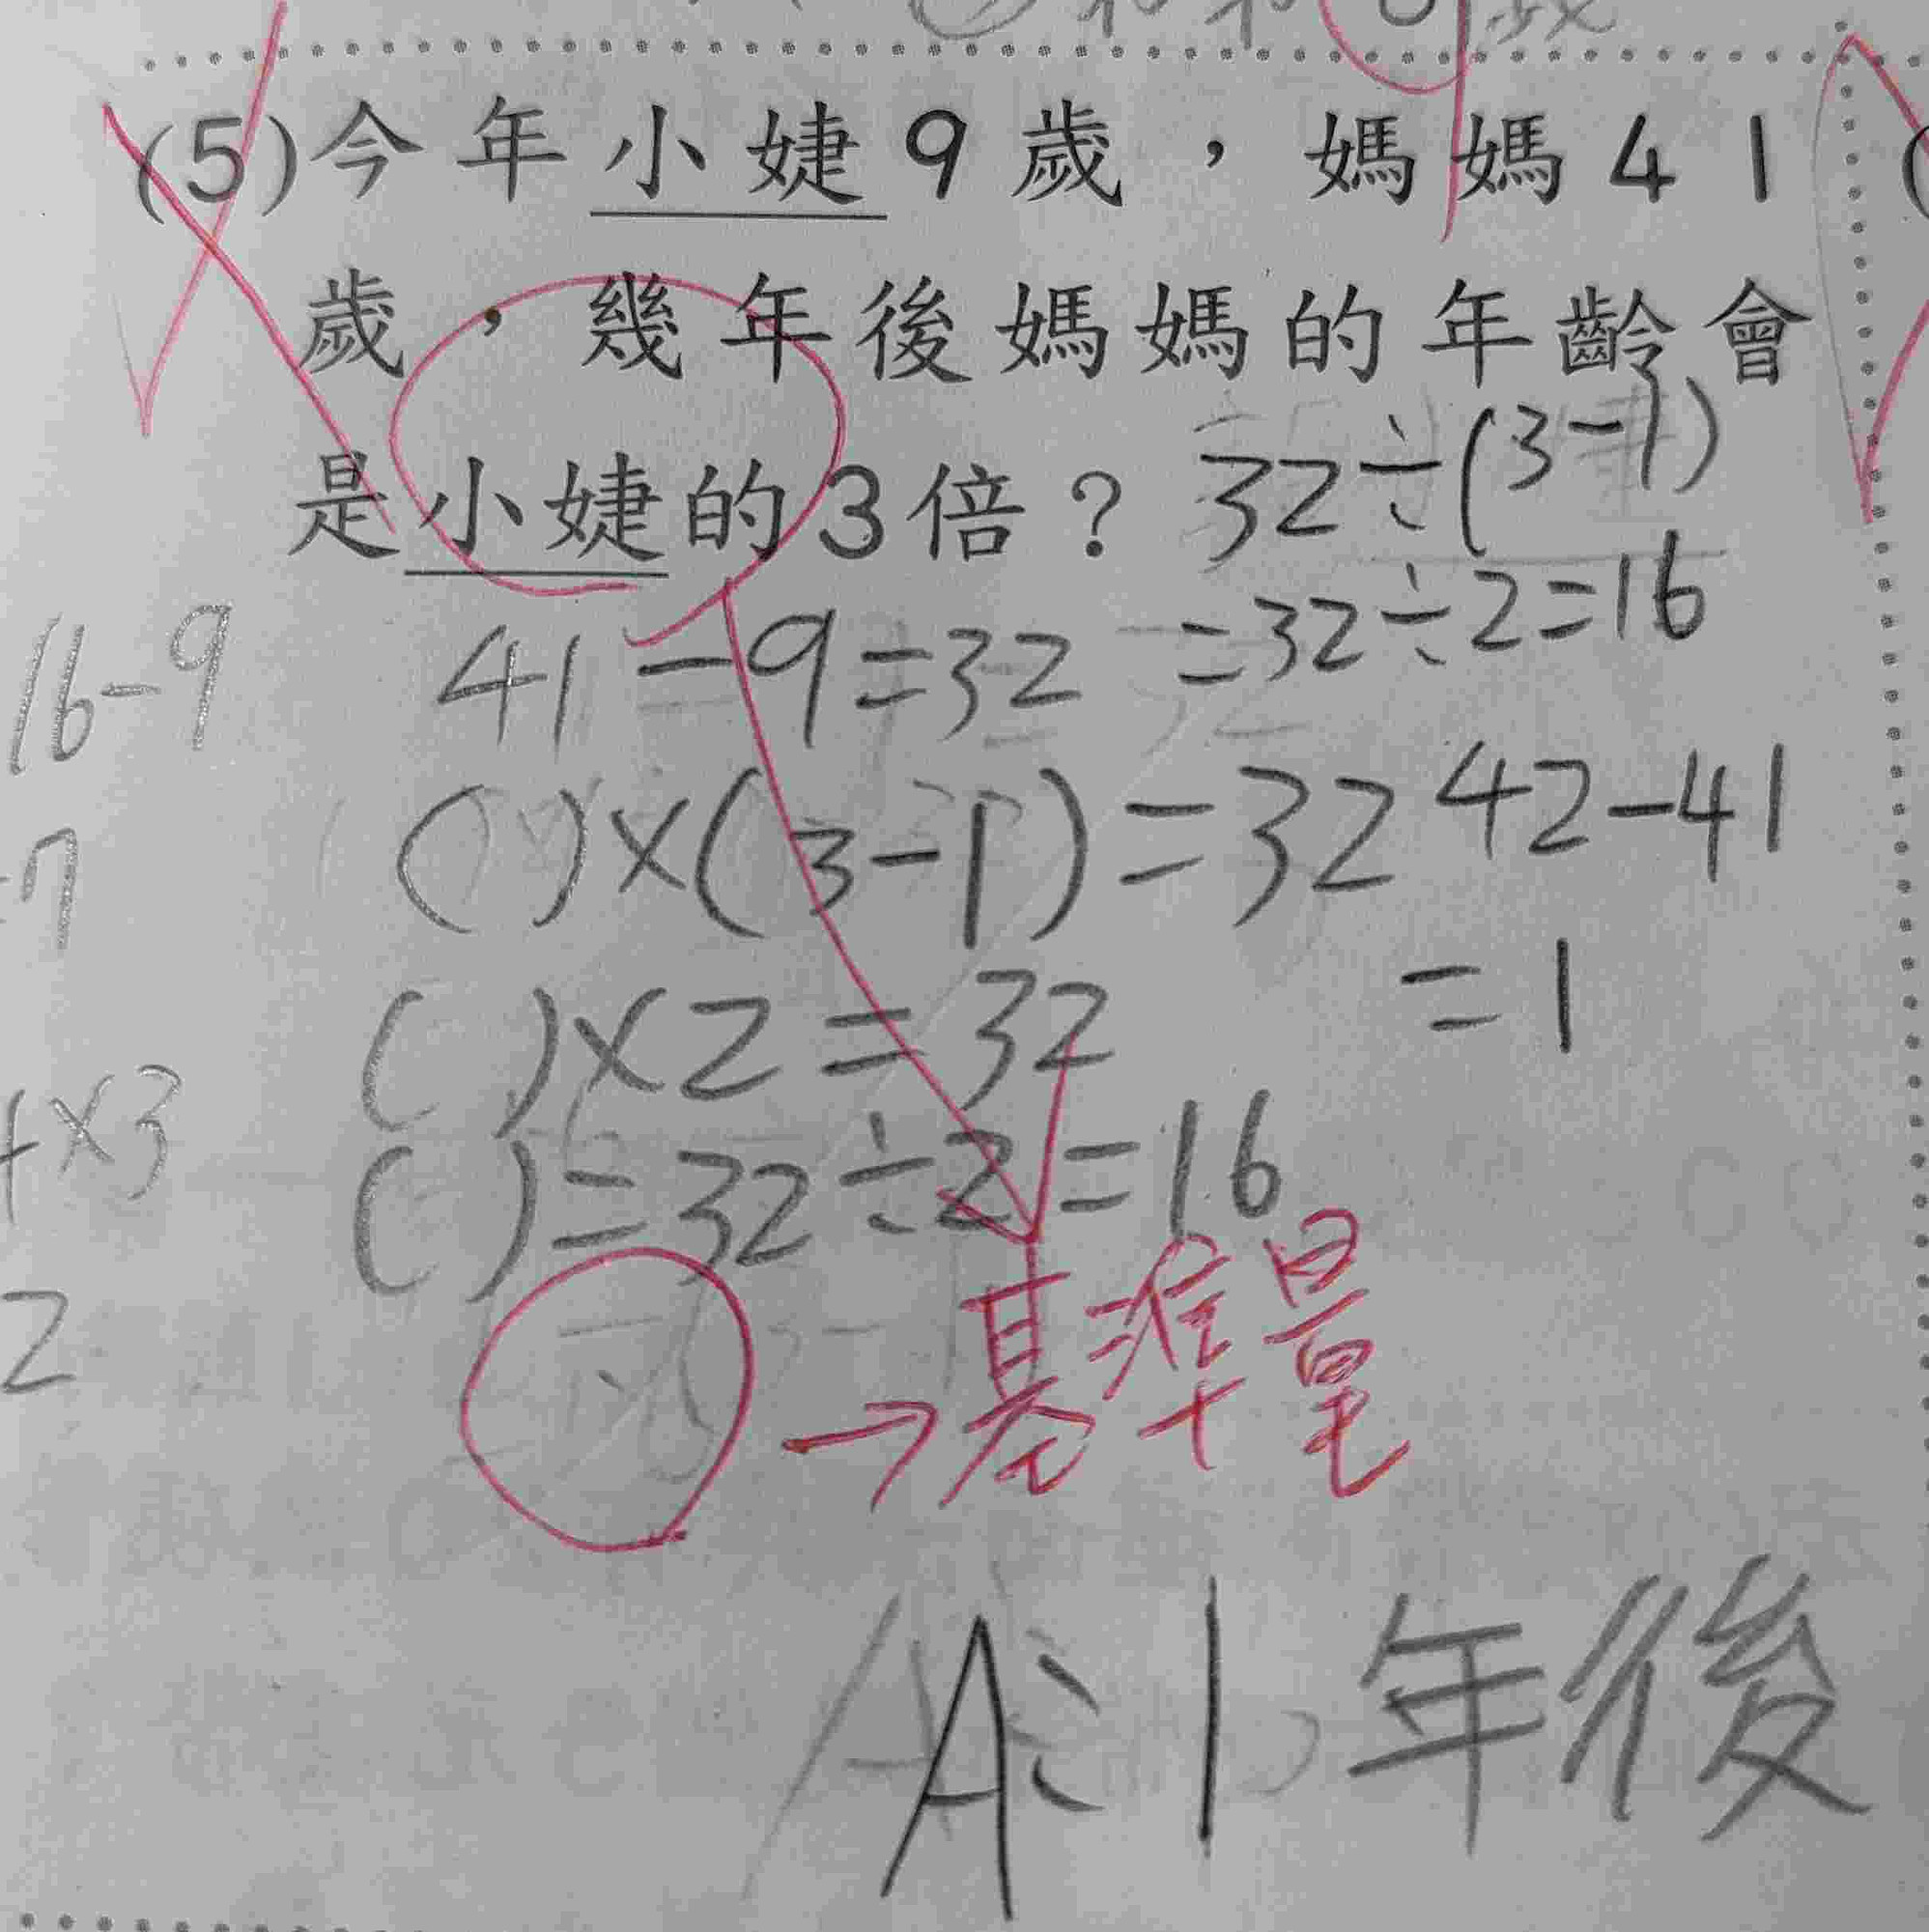 (5)今年小婕9歲，媽媽41
歲，幾年後媽媽的年齡會
是小婕的3倍？
32÷(3-1)
=32÷2=16
16-9
41-9=32
( )×(3-1)=32
42-41
=1
7
( )×2=32
×3
( )=32÷2=16
2
→基準量
A：1年後